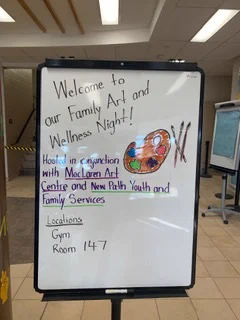 Welcome to
our Family Art and
Wellness Night!
Hosted in conjunction
with MacLaren Art
Centre and New Path Youth and
Family Services
Locations
Gym
Room 147